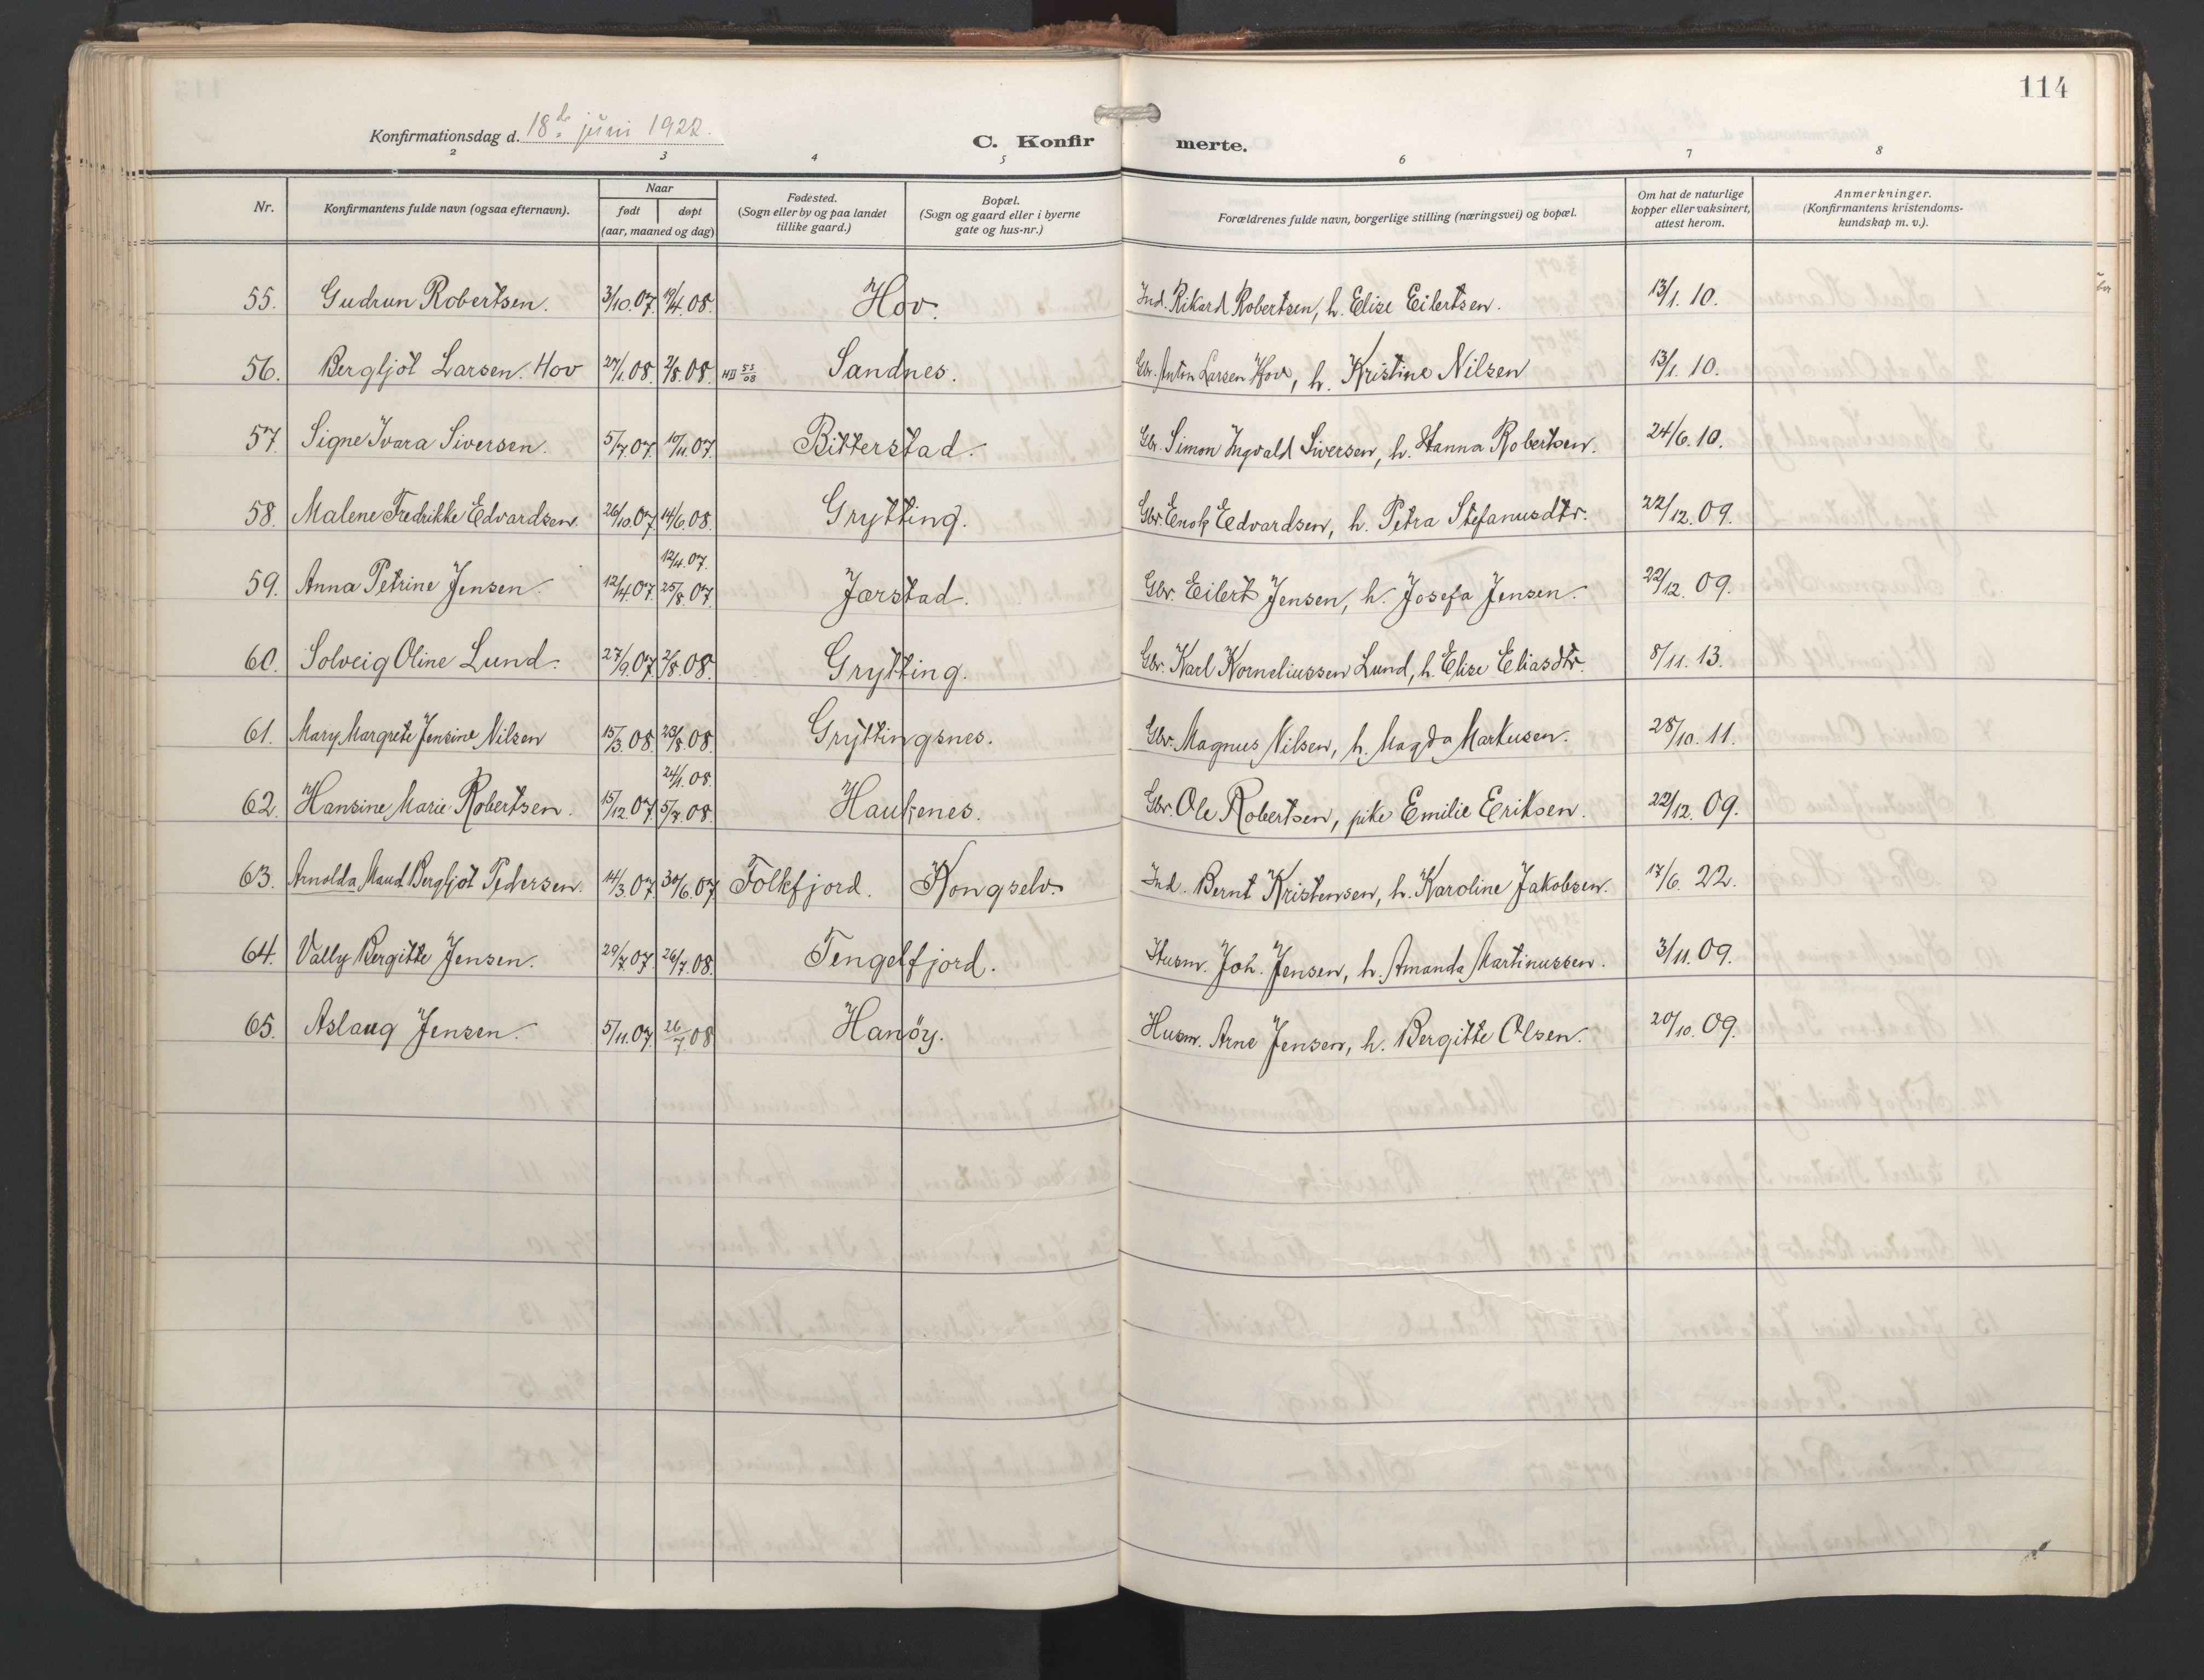 114
Konfirmationsdag d. 18de juni 1922.
C. Konfirmerte.
2 3 4 5 6 7 8
Nr. Konfirmantens fulde navn (ogsaa efternavn). Naar født døpt (aar, maaned og dag) Fødested. (Sogn eller by og paa landet tillike gaard.) Bopæl. (Sogn og gaard eller i byerne gate og hus-nr.) Forældrenes fulde navn, borgerlige stilling (næringsvei) og bopæl. Om hat de naturlige kopper eller vaksinert, attest herom. Anmerkninger. (Konfirmantens kristendoms-kundskap m. v.).
55. Gudrun Robertsen. 3/10.07. 19/4.08. Hov. Ind. Rikard Robertsen, h. Elise Eilertsen. 13/1.10.
56. Bergljot Larsen. Hov 27/1.08. 2/8.08. Sandnes. Gbr. Anton Larsen Hov, h. Kristine Nilsen 13/1.10.
57. Signe Ivara Siversen. 5/7.07. 10/11.07. Bitterstad. Gbr. Simon Ingvald Siversen, h. Hanna Robertsen. 24/6.10.
58. Malene Fredrikke Edvardsen. 26/10.07. 14/6.08. Grytting. Gbr. Enok Edvardsen, h. Petra Stefanusdtr. 22/12.09.
12/4.07.
59. Anna Petrine Jensen. 12/4.07. 25/8.07. Jørstad. Gbr. Eilert Jensen, h. Josefa Jensen. 22/12.09.
60. Solveig Oline Lund. 27/9.07. 2/8.08. Grytting. Gbr. Karl Korneliussen Lund, h. Elise Eliasdtr. 8/11.13.
61. Mary Margrete Jensine Nilsen 15/3.08. 23/8.08. Gryttingsnes. Gbr. Magnus Nilsen, h. Magda Markusen. 28/10.11.
24/1.08.
62. Hansine Marie Robertsen. 15/12.07. 5/7.08. Haukenes. Gbr. Ole Robertsen, pike Emilie Eriksen. 22/12.09.
63. Arnolda Maud Bergljot Pedersen. 14/3.07. 30/6.07. Folkfjord. Kongselv. Ind. Bernt Kristensen, h. Karoline Jakobsen. 17/6.22.
64. Vally Bergitte Jensen. 29/7.07. 26/7.08. Tengelfjord. Husm. Joh. Jensen, h. Amanda Martinussen. 3/11.09.
65. Aslaug Jensen. 5/11.07. 26/7 08 Hanöy. Husm. Arne Jensen, h. Bergitte Olsen. 20/10.09.